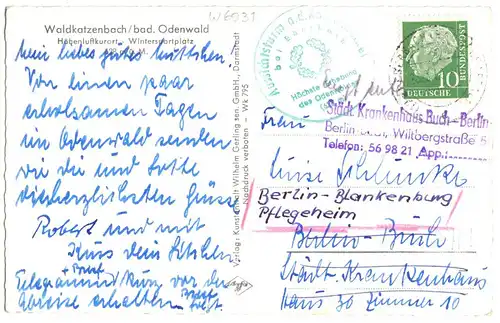 W6931
Waldkatzenbach/bad. Odenwald
Höhenluftkurort - Wintersportplatz
Mein liebes gutes Muttchen.
Von einen paar
erholsamen Tagen
im Odenwald senden
wir die und Lotte
die herzlichsten Grüsse
Robert und
mit Kuss dein
Telegramm + Brief kurz vor der
Abreise erhalten Brief folgt.
Verlag: Kunstanstalt Wilhelm Gerling sen. GmbH., Darmstadt
Nachdruck verboten - Wk 795
Agfa
Höchste Erhebung
des Odenwaldes
10
DEUTSCHE BUNDESPOST
Städt. Krankenhaus Buch - Berlin
Berlin-Buch, Wiltbergstraße
Telefon: 56 98 21 App.:
Frau
Berlin-Blankenburg
Pflegeheim
Berlin-Buch
Städt. Krankenhaus
Haus 30 Zimmer 10